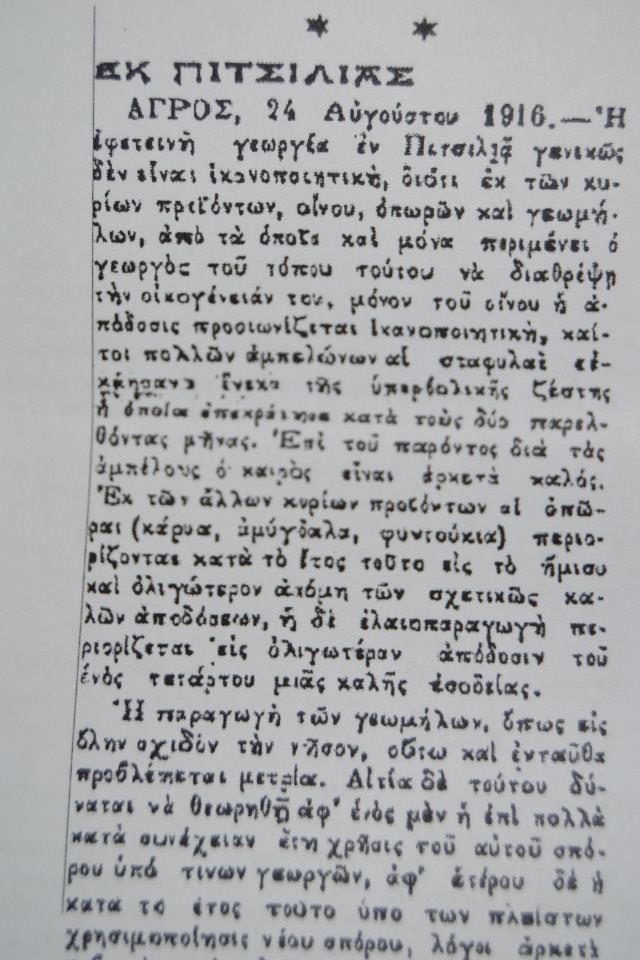 ΕΚ ΠΙΤΣΙΛΙΑΣ
ΑΓΡΟΣ, 24 Αὐγούστου 1916.—Ἡ
ἐφετεινὴ γεωργία ἐν Πιτσιλιᾷ γενικῶς
δὲν εἶναι ἱκανοποιητική, διότι ἐκ τῶν κυ-
ρίων προϊόντων, οἴνου, ὀπωρῶν καὶ γεωμή-
λων, ἀπὸ τὰ ὁποῖα καὶ μόνα περιμένει ὁ
γεωργὸς τοῦ τόπου τούτου νὰ διαθρέψῃ
τὴν οἰκογένειάν του, μόνον τοῦ οἴνου ἡ ἀ-
πόδοσις προοιωνίζεται ἱκανοποιητική, καί-
τοι πολλῶν ἀμπελώνων αἱ σταφυλαὶ ἐ-
κάησαν ἕνεκα τῆς ὑπερβολικῆς ζέστης
ἡ ὁποία ἐπεκράτησε κατὰ τοὺς δύο παρελ-
θόντας μῆνας. Ἐπὶ τοῦ παρόντος διὰ τὰς
ἀμπέλους ὁ καιρὸς εἶναι ἀρκετὰ καλός.
Ἐκ τῶν ἄλλων κυρίων προϊόντων αἱ ὀπῶ-
ραι (κάρυα, ἀμύγδαλα, φυντούκια) περιο-
ρίζονται κατὰ τὸ ἔτος τοῦτο εἰς τὸ ἥμισυ
καὶ ὀλιγώτερον ἀκόμη τῶν σχετικῶς κα-
λῶν ἀποδόσεων, ἡ δὲ ἐλαιοπαραγωγὴ πε-
ριορίζεται εἰς ὀλιγωτέραν ἀπόδοσιν τοῦ
ἑνὸς τετάρτου μιᾶς καλῆς ἐσοδείας.
Ἡ παραγωγὴ τῶν γεωμήλων, ὅπως εἰς
ὅλην σχεδὸν τὴν νῆσον, οὕτω καὶ ἐνταῦθα
προβλέπεται μετρία. Αἰτία δὲ τούτου δύ-
ναται νὰ θεωρηθῇ ἀφ' ἑνὸς μὲν ἡ ἐπὶ πολλὰ
κατὰ συνέχειαν ἔτη χρῆσις τοῦ αὐτοῦ σπό-
ρου ὑπό τινων γεωργῶν, ἀφ' ἑτέρου δὲ ἡ
κατα το ἔτος τουτο ὑπο των πλείστων
χρησιμοποίησις νέου σπόρου, λόγοι ἀρκετὰ